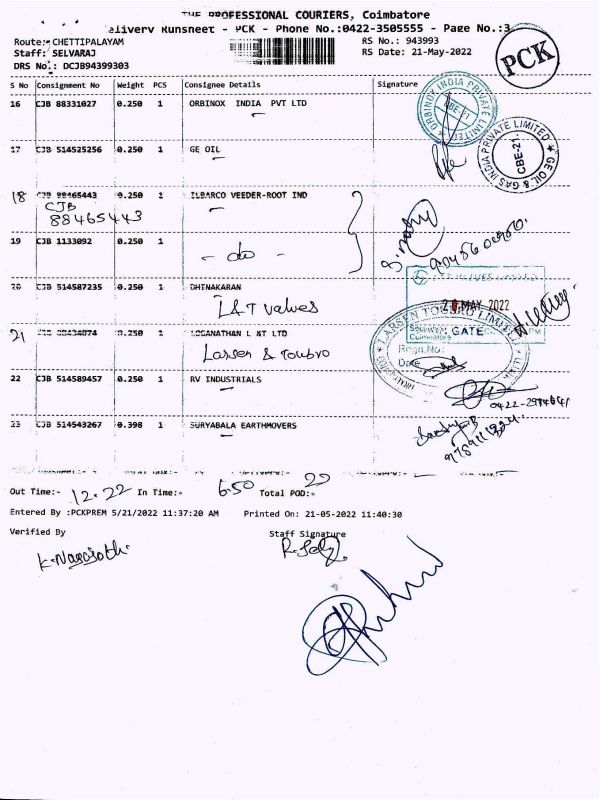 THE PROFESSIONAL COURIERS, Coimbatore
Delivery Runsheet - PCK - Phone No.:0422-3505555 - Page No.:3
Route: CHETTIPALAYAM
RS No.: 943993
Staff: SELVARAJ
RS Date: 21-May-2022
DRS No.: DCJB94399303
PCK
S No Consignment No Weight PCS Consignee Details Signature
16 CJB 88331027 0.250 1 ORBINOX INDIA PVT LTD
ORBINOX INDIA PRIVATE LIMITED
17 CJB 514525256 0.250 1 GE OIL
GE OIL & GAS INDIA PRIVATE LIMITED
CBE-21
18 CJB 88465443 0.250 1 ILBARCO VEEDER-ROOT IND
CJB
88465443
19 CJB 1133092 0.250 1
- do -
20 CJB 514587235 0.250 1 DHINAKARAN
L&T Valves
MAY 2022
21 0.250 1 LOGANATHAN L &T LTD
Larsen & Toubro
LARSEN TOUBRO LIMITED
GATE
Regn.No:
Date
22 CJB 514589457 0.250 1 RV INDUSTRIALS
23 CJB 514543267 0.398 1 SURYABALA EARTHMOVERS
Out Time:- 12.22 In Time:- 6.50 Total POD:-
Entered By :PCKPREM 5/21/2022 11:37:20 AM Printed On: 21-05-2022 11:40:30
Verified By
Staff Signature